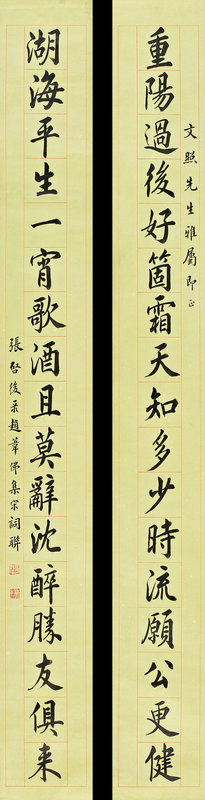 文照先生雅屬即正
重陽過後好箇霜天知多少時流願公更健
湖海平生一宵歌酒且莫辭沈醉勝友俱来
張启後采趙葦佛集宋詞聯